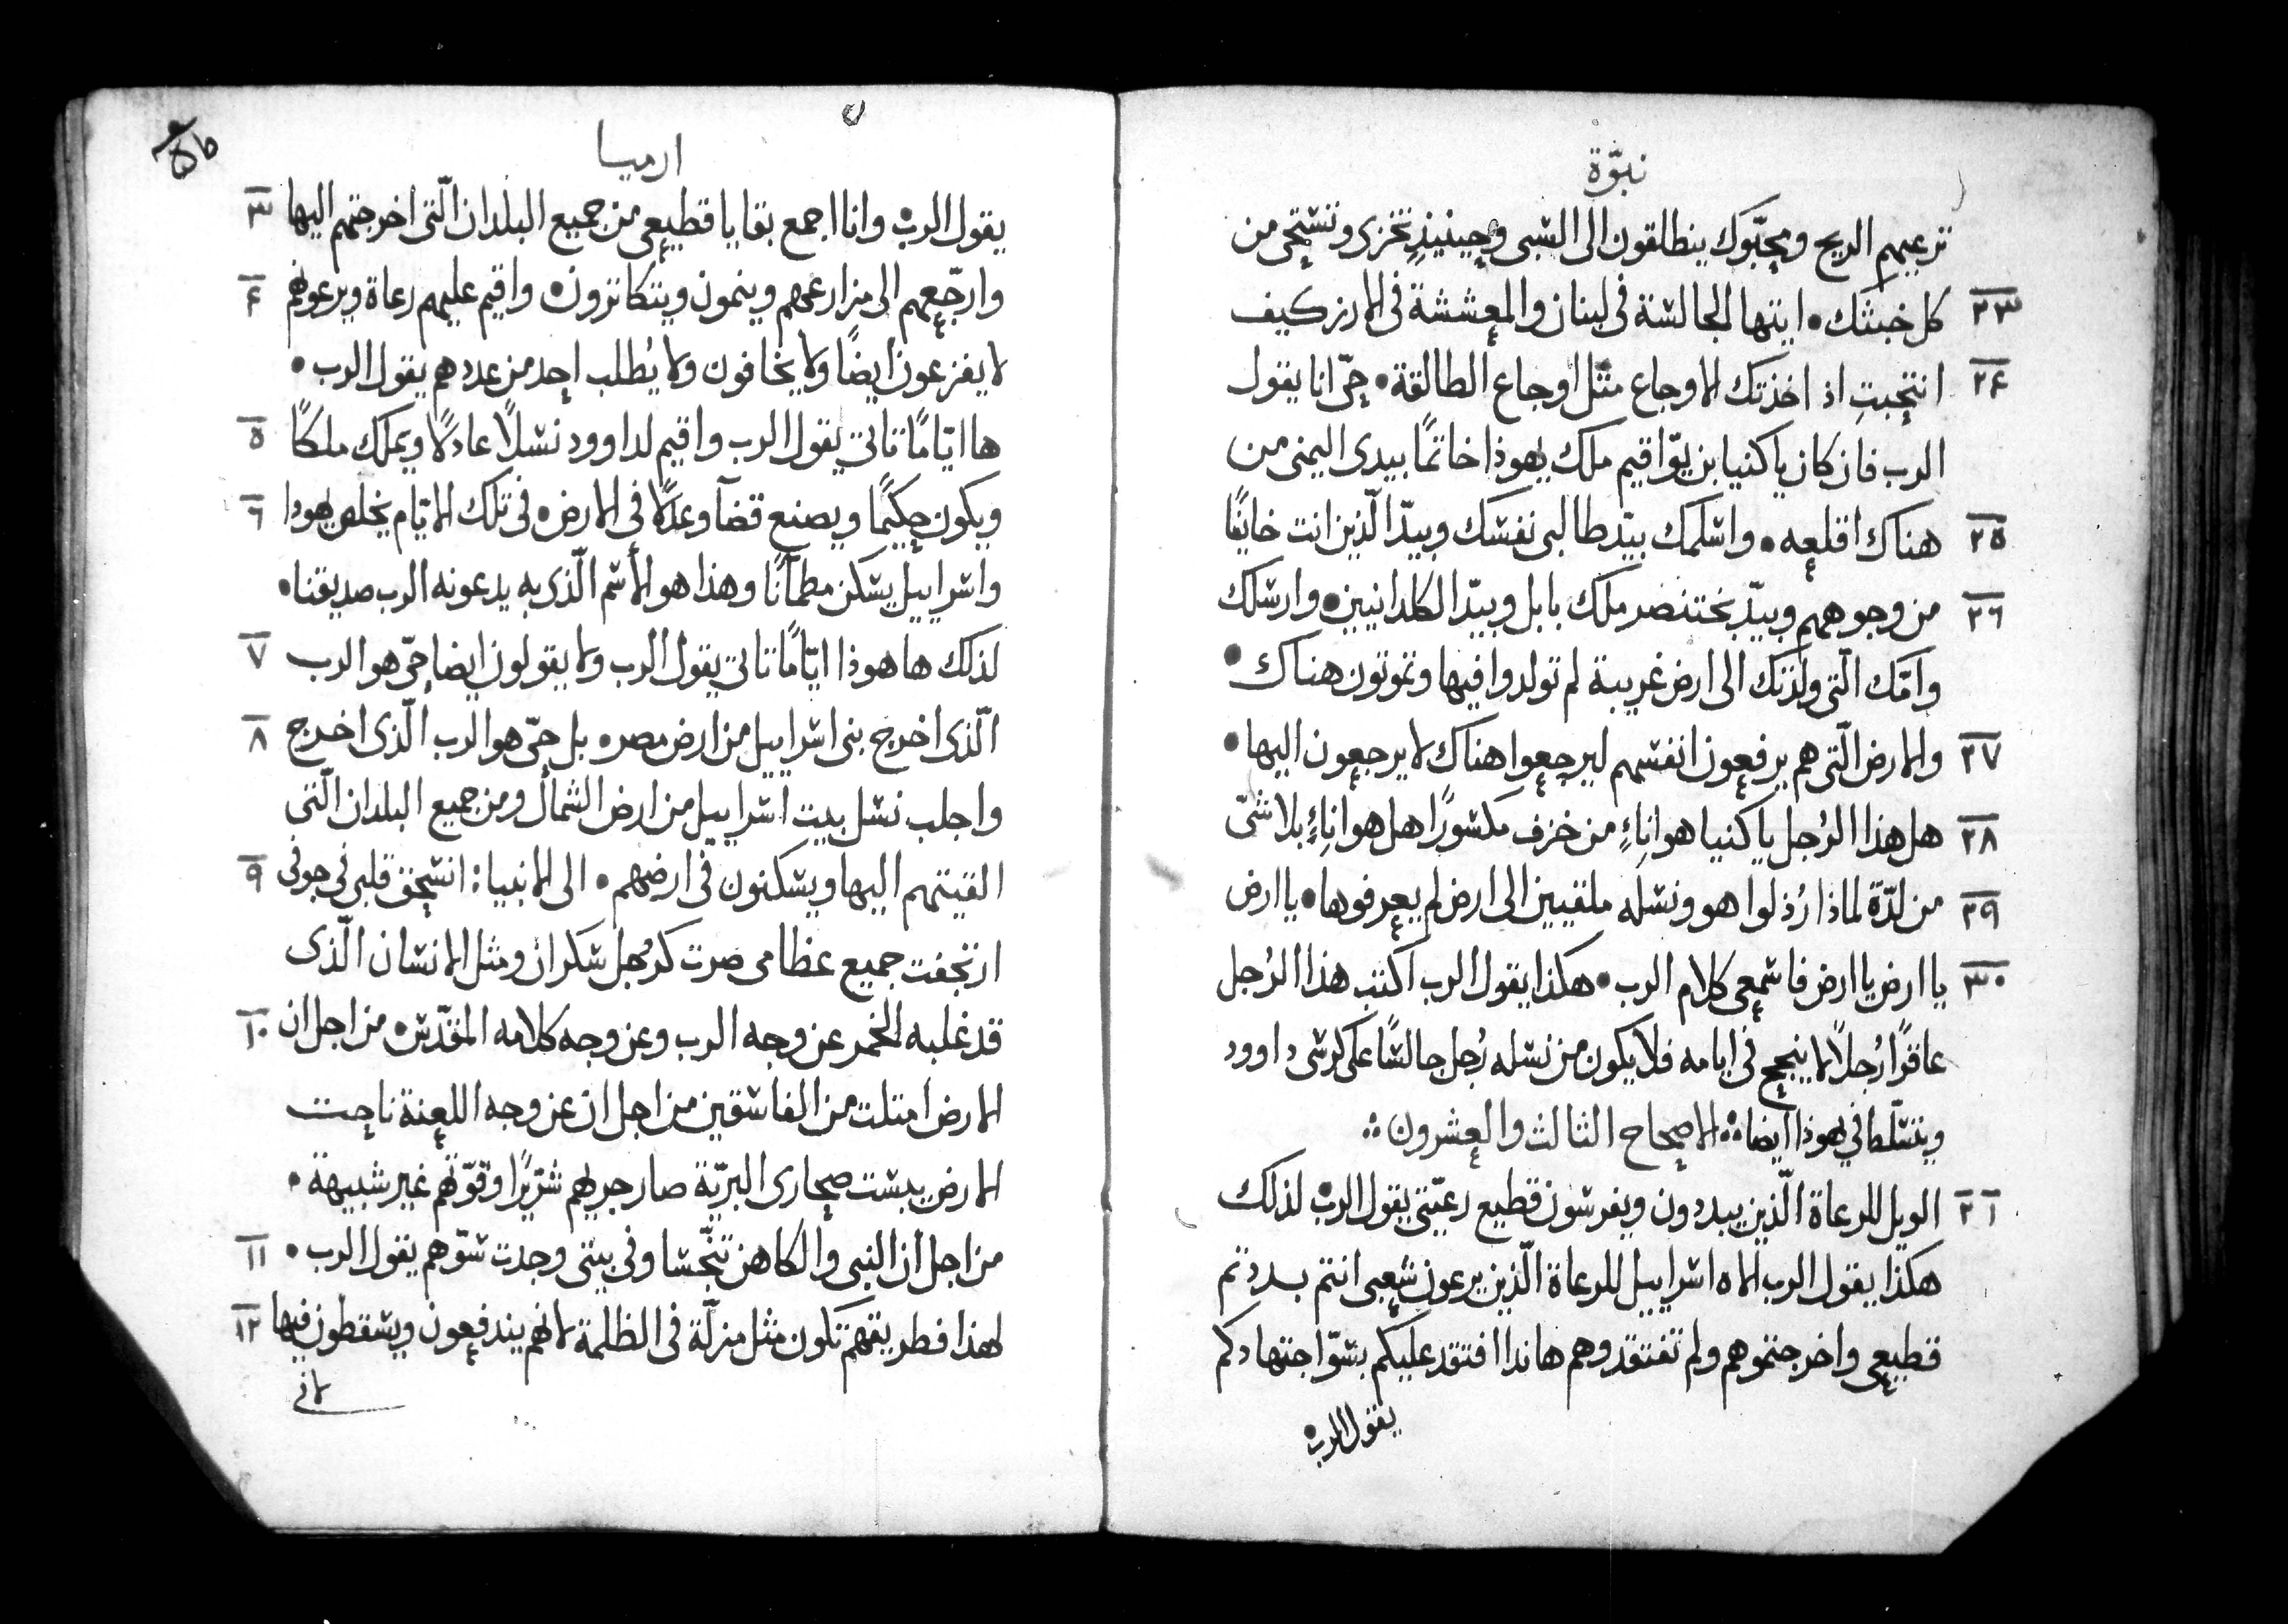 نبوّة
ترعيهم الريح ومحبّوك ينطلقون الى السبى وحينيذٍ تخزى وتستحى من
٢٣ كل خبثك • ايتها الجالسة فى لبنان والمعششة فى الارز كيف
٢٤ انتحبتِ اذ اخذتك الاوجاع مثل اوجاع الطالقة • حىّ انا يقول
الرب فان كان ياكنيا بن يوّاقيم ملك يهوذا خاتمًا بيدى اليمنى من
٢٥ هناك اقلعه • واسلمك بيد طالبى نفسك وبيد الّذين انت خايفًا
٢٦ من وجوههم وبيد بختنصر ملك بابل وبيد الكلدانيين • وارسلك
وامّك الّتى ولدتك الى ارض غريبة لم تولدوا فيها وتموتون هناك •
٢٧ والارض الّتى هم يرفعون انفسهم ليرجعوا هناك لا يرجعون اليها •
٢٨ هل هذا الرُجل ياكنيا هو اناءٍ من خزف مكسورًا هل هو اناءٍ بلا شىّ
٢٩ من لدّة لماذا رُذلوا هو ونسله ملقيين الى ارض لم يعرفوها • يا ارض
٣٠ يا ارض يا ارض فاسمعى كلام الرب • هكذا يقول الرب اكتب هذا الرُجل
عاقرًا رُجلاً لا ينجح فى ايامه فلا يكون من نسله رُجل جالسًا على كرسى داوود
ويتسلّط فى يهوذا ايضا ⁘ الاصحاح الثالث والعشرون ⁘
٢١ الويل للرعاة الّذين يبددون ويفرسون قطيع رعيّتى يقول الرب • لذلك
هكذا يقول الرب الاه اسراييل للرعاة الّذين يرعون شعبى انتم بددتم
قطيعى واخرجتموهم ولم تفتقدوهم هانذا افتقد عليكم بسوّ اجتهادكم
يقول الرب •
ارميا
٣ يقول الرب • وانا اجمع بقايا قطيعى من جميع البلدان الّتى اخرجتهم اليها
٤ وارجّعهم الى مزارعهم وينمون ويتكاثرون • واقيم عليهم رعاة ويرعونهم
لا يفزعون ايضًا ولا يخافون ولا يُطلب احد من عددهم يقول الرب •
٥ ها ايّامًا تاتى يقول الرب واقيم لداوود نسلاً عادلاً ويملك ملكًا
٦ ويكون حكيمًا ويصنع قضآ وعدلاً فى الارض • فى تلك الايّام يخلص يهودا
واسراييل يسكن مطمآنًا وهذا هو الأسم الّذى به يدعونه الرب صديقنا •
٧ لذلك ها هوذا ايّامًا تاتى يقول الرب ولا يقولون ايضا حىّ هو الرب
٨ الّذى اخرج بنى اسراييل من ارض مصر • بل حىّ هو الرب الّذى اخرج
واجلب نسل بيت اسراييل من ارض الشمال ومن جميع البلدان الّتى
٩ القيتهم اليها ويسكنون فى ارضهم • الى الانبيا : انسحق قلبى فى جوفى
ارتجفت جميع عظامى صرت كرُجل سكران ومثل الانسان الّذى
١٠ قد غلبه الخمر عن وجه الرب وعن وجه كلامه المقدّس • من اجل ان
الارض امتلت من الفاسقين من اجل ان عن وجه اللعنة ناحت
الارض يبست صحارى البريّة صار جريهم شرّيرًا وقوّتهم غير شبيهة •
١١ من اجل ان النبى والكاهن تنجّسا وفى بيتى وجدت سوّهم يقول الرب •
١٢ لهذا فطريقهم تكون مثل مزلّة فى الظلمة لانهم يندفعون ويسقطون فيها
لانى